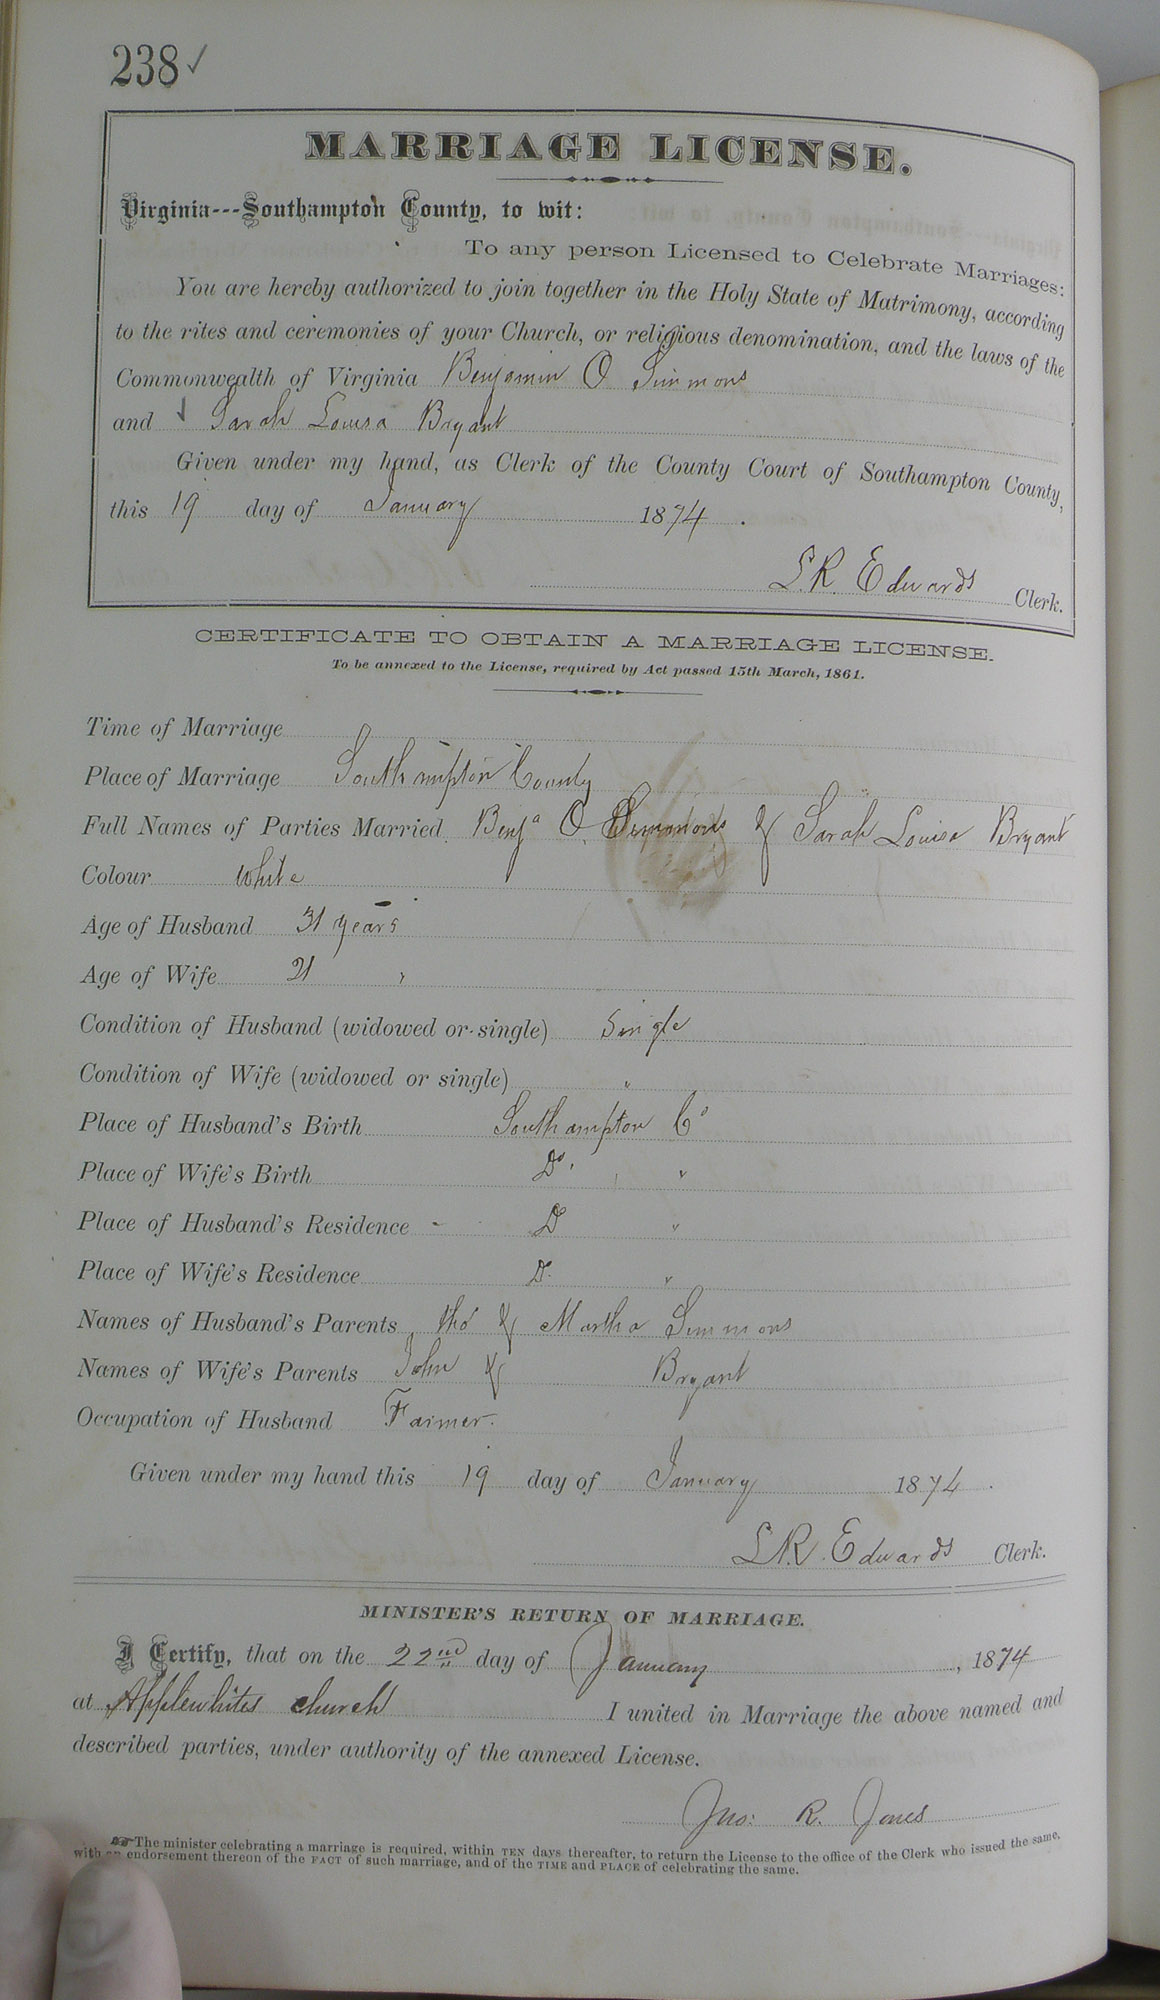 238 ✓
MARRIAGE LICENSE.
Virginia---Southampton County, to wit:
To any person Licensed to Celebrate Marriages:
You are hereby authorized to join together in the Holy State of Matrimony, according
to the rites and ceremonies of your Church, or religious denomination, and the laws of the
Commonwealth of Virginia Benjamin O Simmons
and Sarah Louisa Bryant
Given under my hand, as Clerk of the County Court of Southampton County,
this 19 day of January 1874.
L.R. Edwards Clerk.
CERTIFICATE TO OBTAIN A MARRIAGE LICENSE.
To be annexed to the License, required by Act passed 15th March, 1861.
Time of Marriage
Place of Marriage Southampton County
Full Names of Parties Married Benja O Simmons & Sarah Louisa Bryant
Colour White
Age of Husband 31 years
Age of Wife 21 "
Condition of Husband (widowed or single) Single
Condition of Wife (widowed or single) "
Place of Husband's Birth Southampton Co
Place of Wife's Birth Do "
Place of Husband's Residence Do "
Place of Wife's Residence Do "
Names of Husband's Parents Tho & Martha Simmons
Names of Wife's Parents John & Bryant
Occupation of Husband Farmer.
Given under my hand this 19 day of January 1874.
L.R. Edwards Clerk.
MINISTER'S RETURN OF MARRIAGE.
I Certify, that on the 22nd day of January, 1874
at Applewhites church I united in Marriage the above named and
described parties, under authority of the annexed License.
Jno: R. Jones
The minister celebrating a marriage is required, within TEN days thereafter, to return the License to the office of the Clerk who issued the same,
with an endorsement thereon of the FACT of such marriage, and of the TIME and PLACE of celebrating the same.